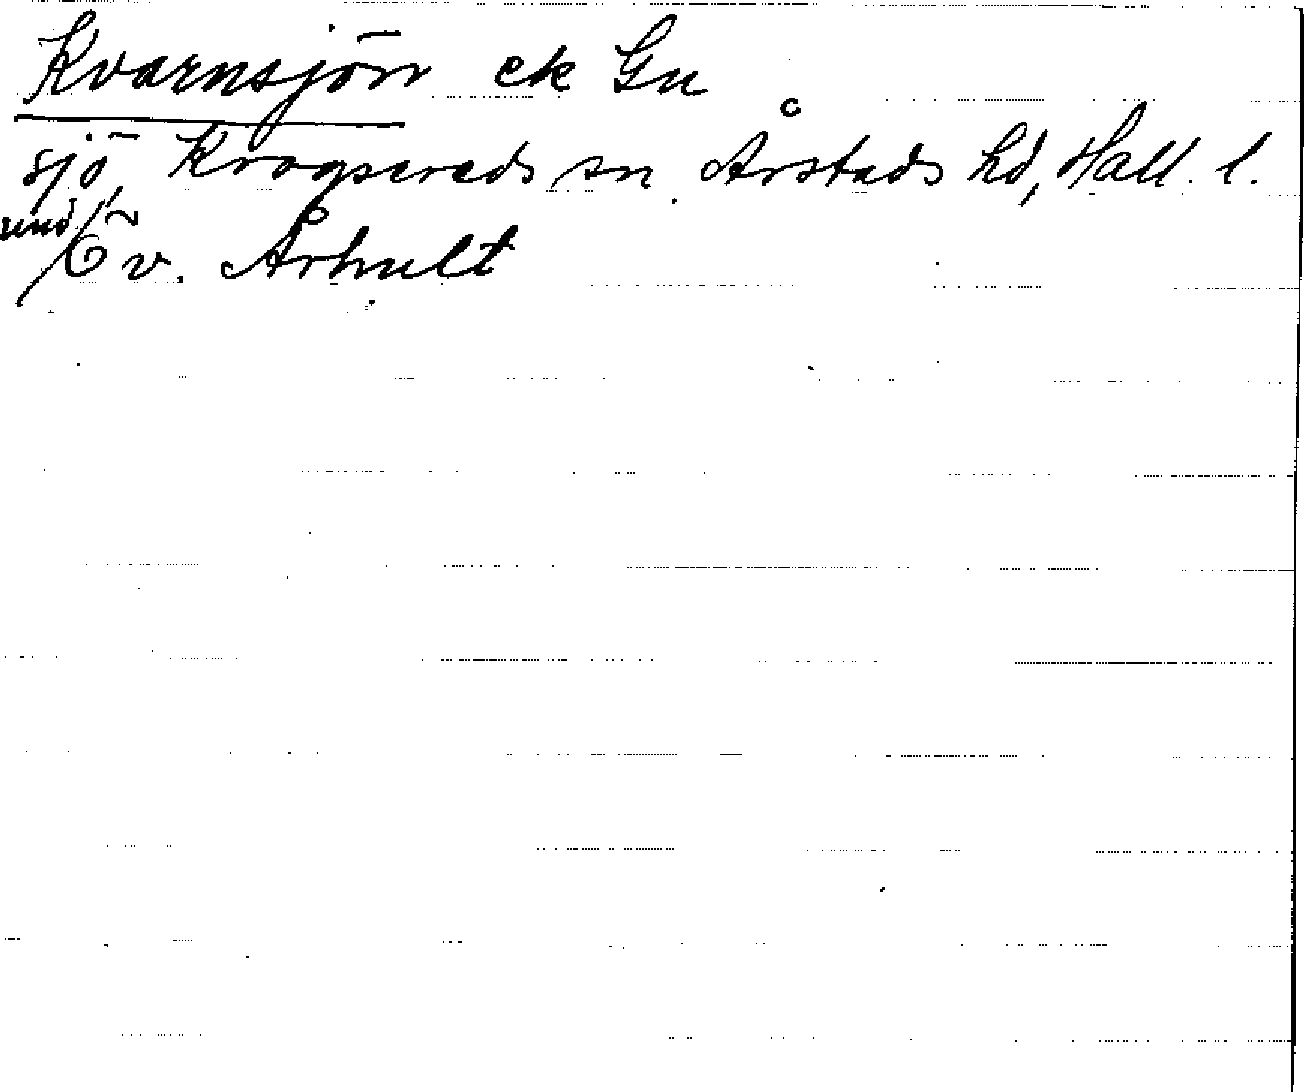 Kvarnsjön ek Gu
sjö, Krogsereds sn Årstads hd, Hall. l.
und Öv. Århult